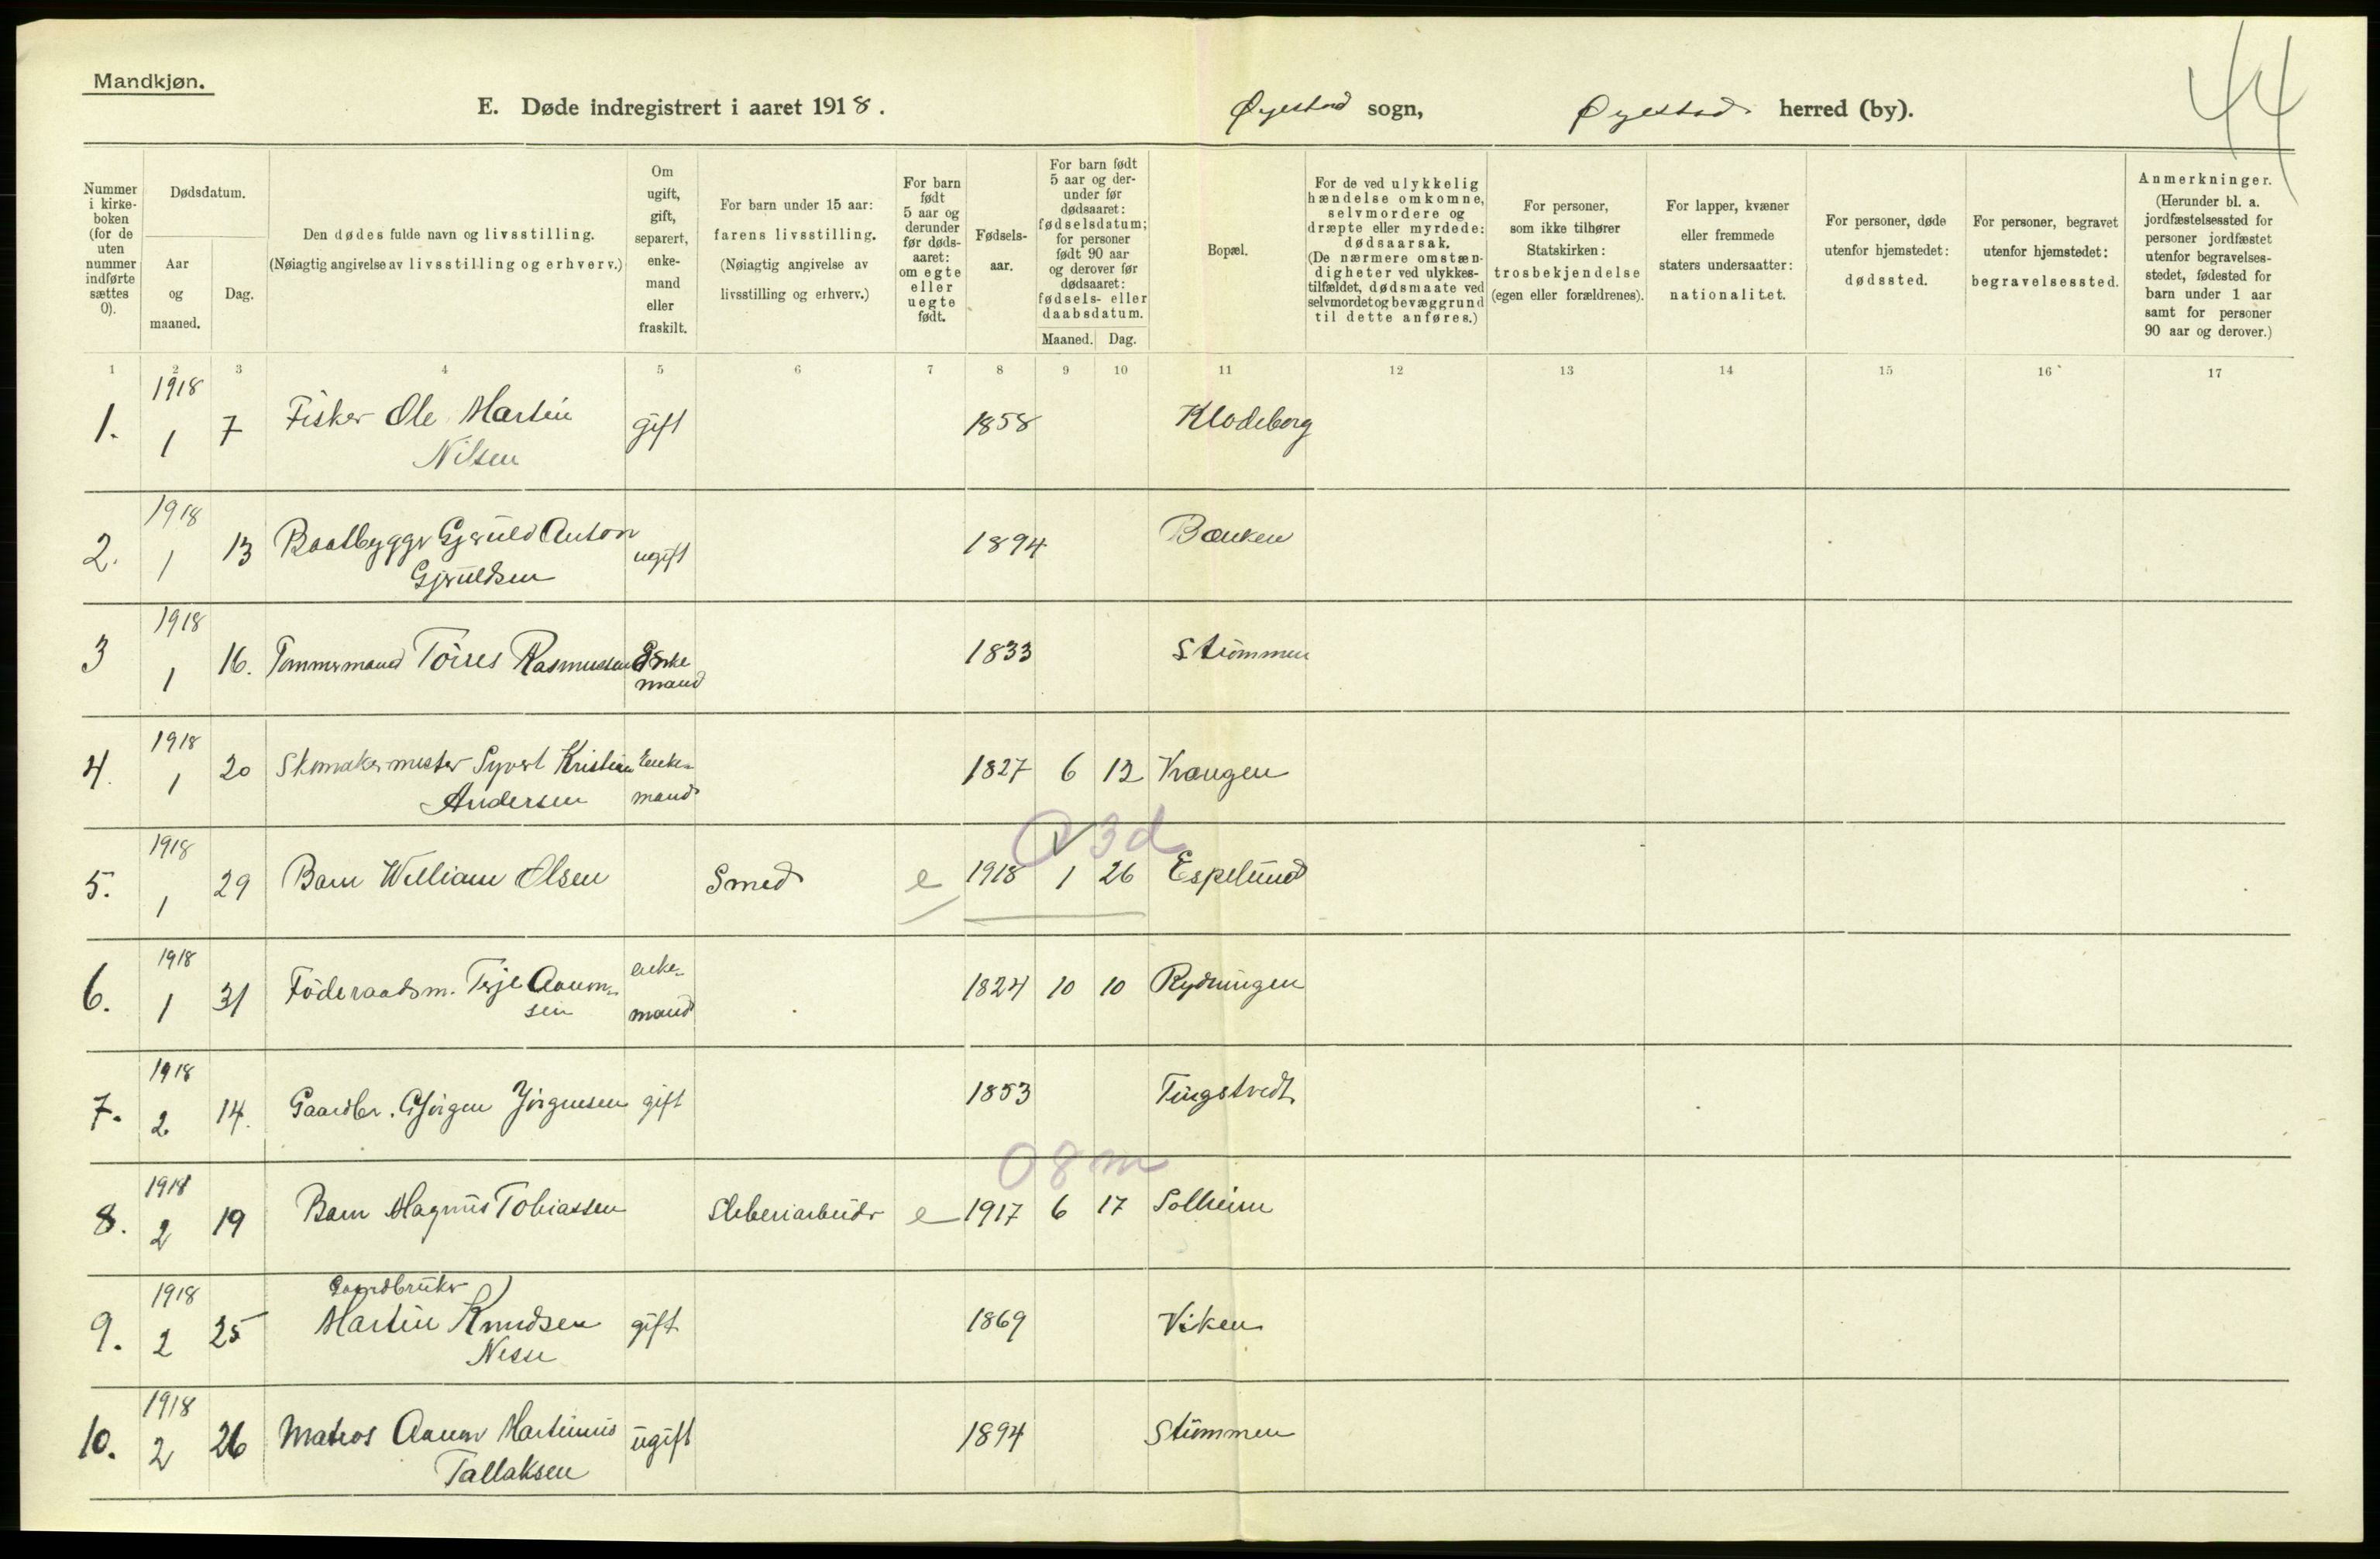 Mandkjøn.
44
E. Døde indregistrert i aaret 1918.
Øyestad sogn, Øyestad herred (by).
Nummer i kirke-boken (for de uten nummer indførte sættes 0).
Dødsdatum.
Aar og maaned.
Dag.
Den dødes fulde navn og livsstilling.
(Nøiagtig angivelse av livsstilling og erhverv.)
Om ugift, gift, separert, enke-mand eller fraskilt.
For barn under 15 aar: farens livsstilling.
(Nøiagtig angivelse av livsstilling og erhverv.)
For barn født 5 aar og derunder før døds-aaret: om egte eller uegte født.
Fødsels-aar.
For barn født 5 aar og der-under før dødsaaret: fødselsdatum; for personer født 90 aar og derover før dødsaaret: fødsels- eller daabsdatum.
Maaned. Dag.
Bopæl.
For de ved ulykkelig hændelse omkomne, selvmordere og dræpte eller myrdede: dødsaarsak.
(De nærmere omstæn-digheter ved ulykkes-tilfældet, dødsmaate ved selvmordet og bevæggrund til dette anføres.)
For personer, som ikke tilhører Statskirken: trosbekjendelse (egen eller forældrenes).
For lapper, kvæner eller fremmede staters undersaatter: nationalitet.
For personer, døde utenfor hjemstedet: dødssted.
For personer, begravet utenfor hjemstedet: begravelsessted.
Anmerkninger.
(Herunder bl. a. jordfæstelsessted for personer jordfæstet utenfor begravelses-stedet, fødested for barn under 1 aar samt for personer 90 aar og derover.)
1 2 3 4 5 6 7 8 9 10 11 12 13 14 15 16 17
1918
1. 1 7 Fisker Ole Martin gift 1858 Klodeborg
Nilsen
1918
2. 1 13 Baatbygger Gjeruld Anton ugift 1894 Banken
Gjeruldsen
1918
3 1 16. Tømmermand Tøres Rasmussen Enke 1833 Strømmen
mand
1918
4. 1 20 Skomakermester Syvert Kristian Enke- 1827 6 12 Vrangen
Andersen mand
0 3 d
1918
5. 1 29 Barn William Olsen Smed e 1918 1 26 Espelund
1918
6. 1 31 Föderaadsm. Terje Aanon- enke- 1824 10 10 Rydningen
sen mand
1918
7. 2 14. Gaardbr. Gjørgen Jörgensen gift 1853 Tingstvedt
0 8 m
1918
8. 2 19 Barn Magnus Tobiassen Sliberiarbeider e 1917 6 17 Solheim
1918 Gaardbruker
9. 2 25 Martin Knudsen gift 1869 Viken
Nesse
1918
10. 2 26 Matros Aanon Martinius ugift 1894 Strømmen
Tallaksen